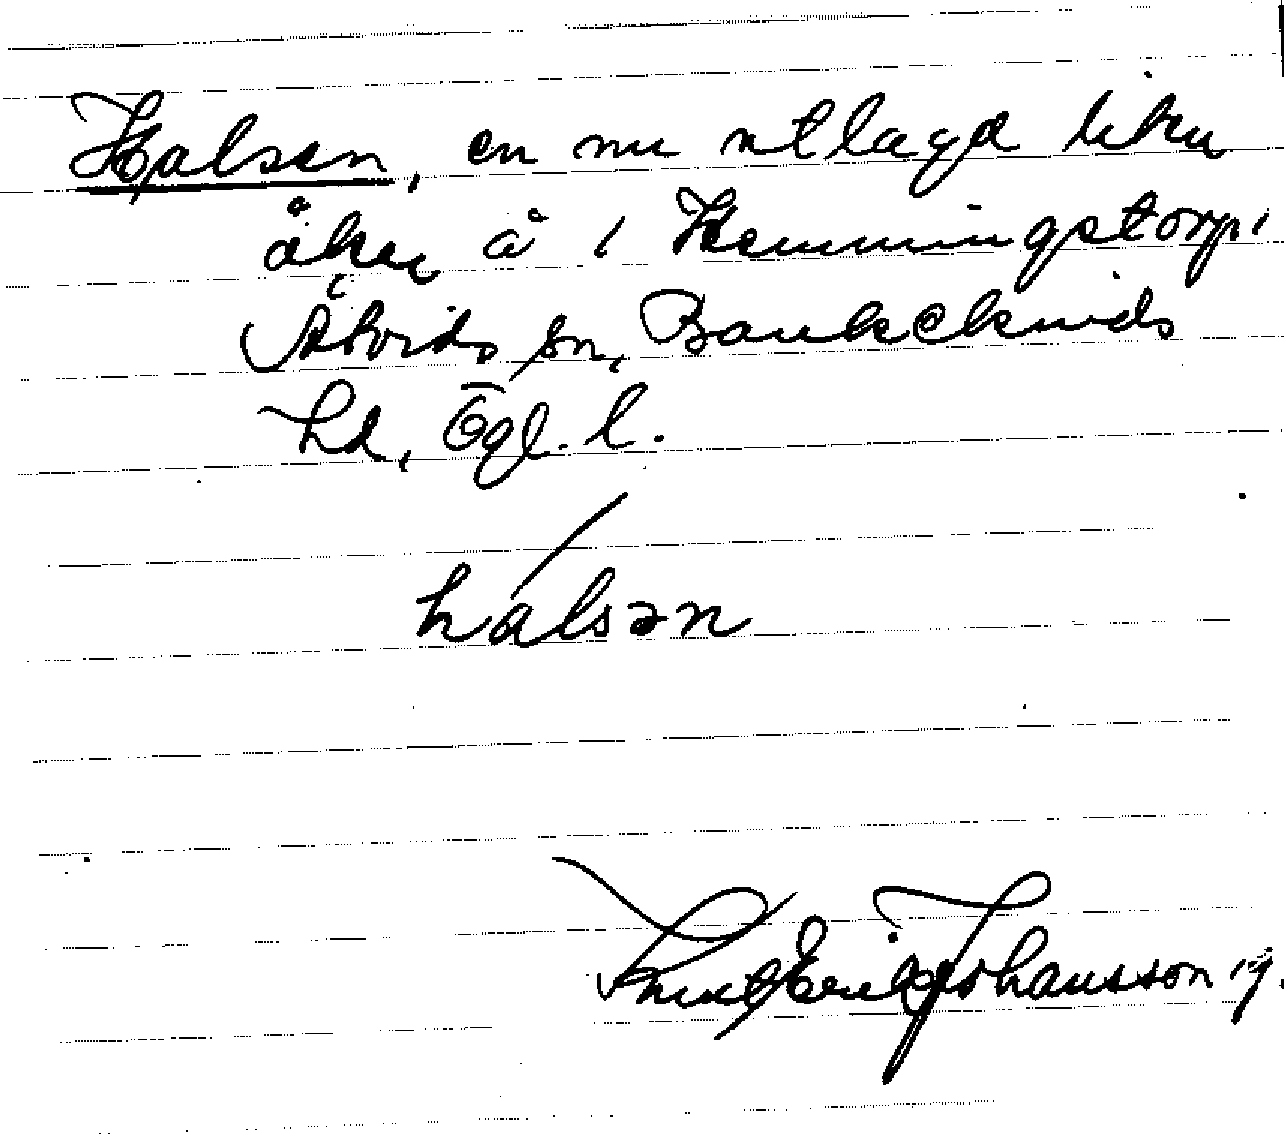 Halsen, en nu utlagd liten
åker å 1 Hemmingstorp i
Åtvids sn, Bankekinds
hd, Ögl. l.
hálsən
Knut Erik Johansson 19